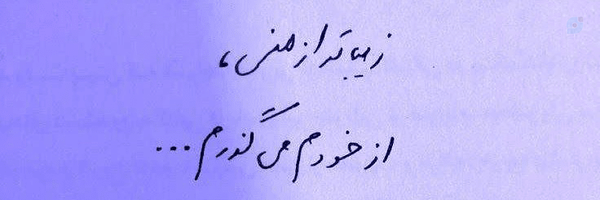 زیباتر از هنس،
از خودم می گذرم...